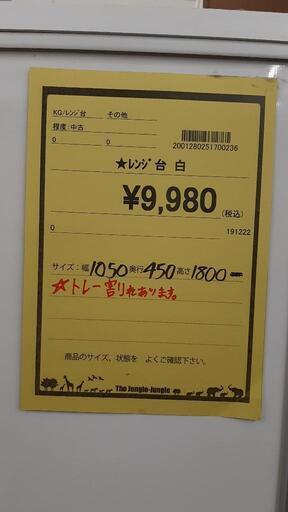 KG/ﾚﾝｼﾞ台 その他
程度:中古
0 0
2001280251700236
★ﾚﾝｼﾞ台 白
¥9,980
(税込)
0 191222
サイズ:幅1050奥行450高さ1800
☆トレー割れあります。
商品のサイズ、状態を よくご確認下さい。
The Jungle-Jungle